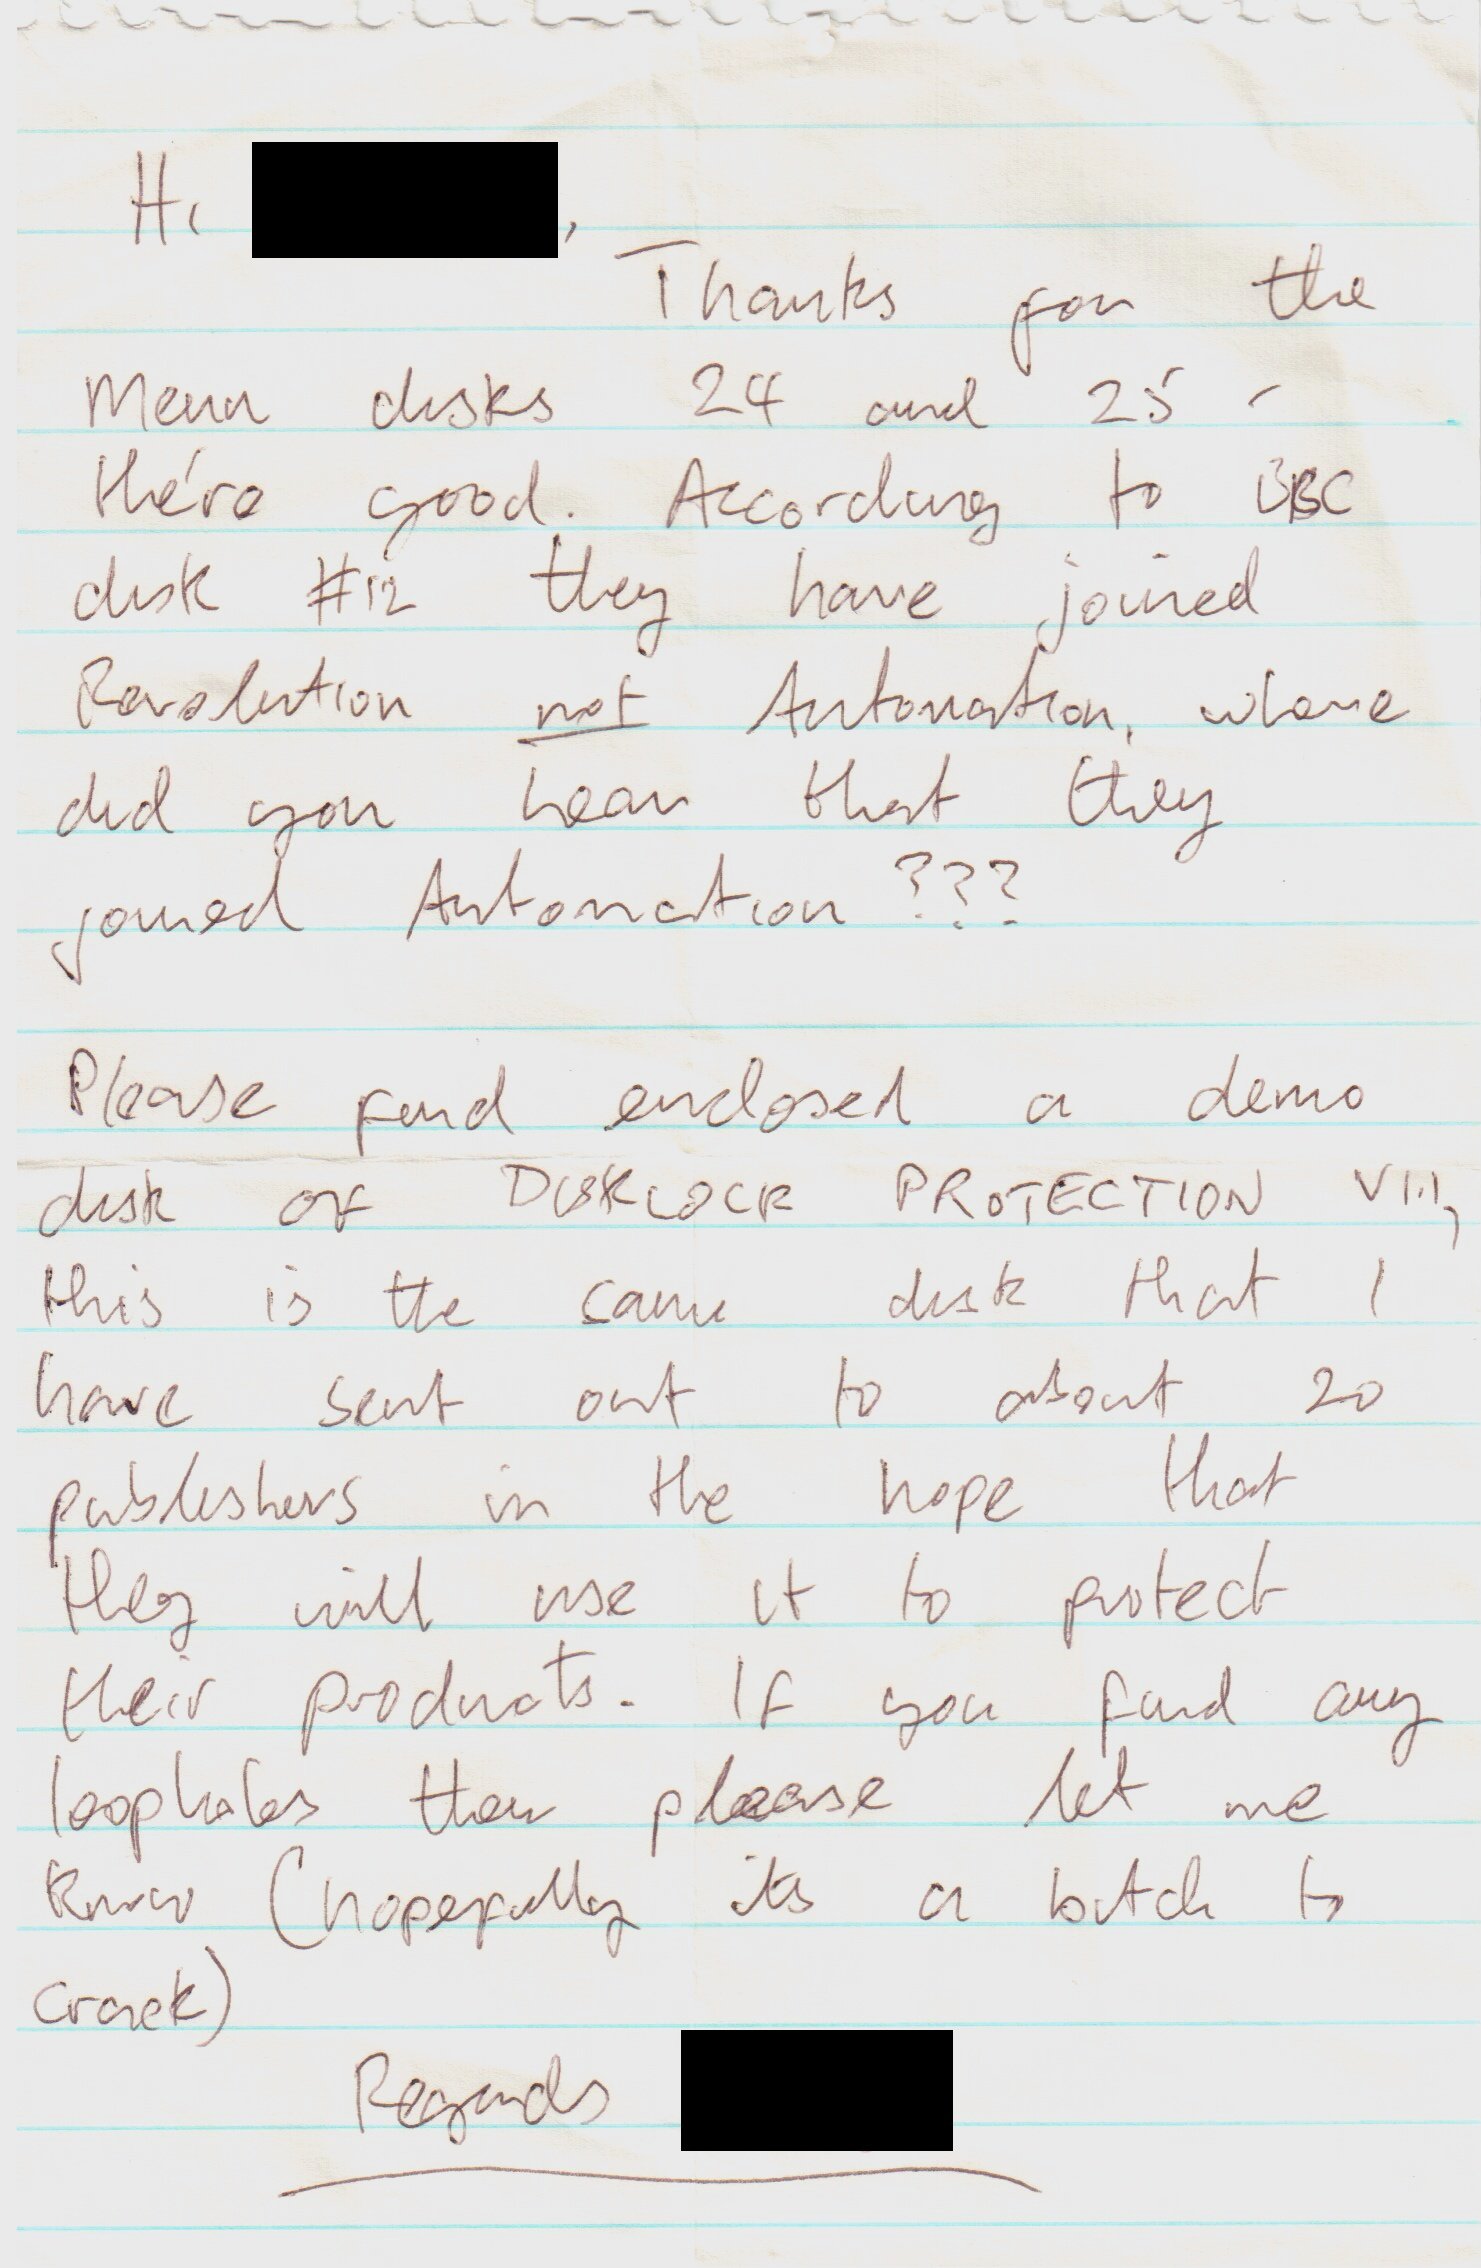 Hi ,
Thanks for the
Menu disks 24 and 25 -
the're good. According to BBC
disk #12 they have joined
Revolution not Automation, where
did you hear that they
joined Automation ???
Please find enclosed a demo
disk of DISKLOCK PROTECTION V1.1,
this is the same disk that I
have sent out to about 20
publishers in the hope that
they will use it to protect
their products. If you find any
loopholes then please let me
know (hopefully its a bitch to
crack)
Regards